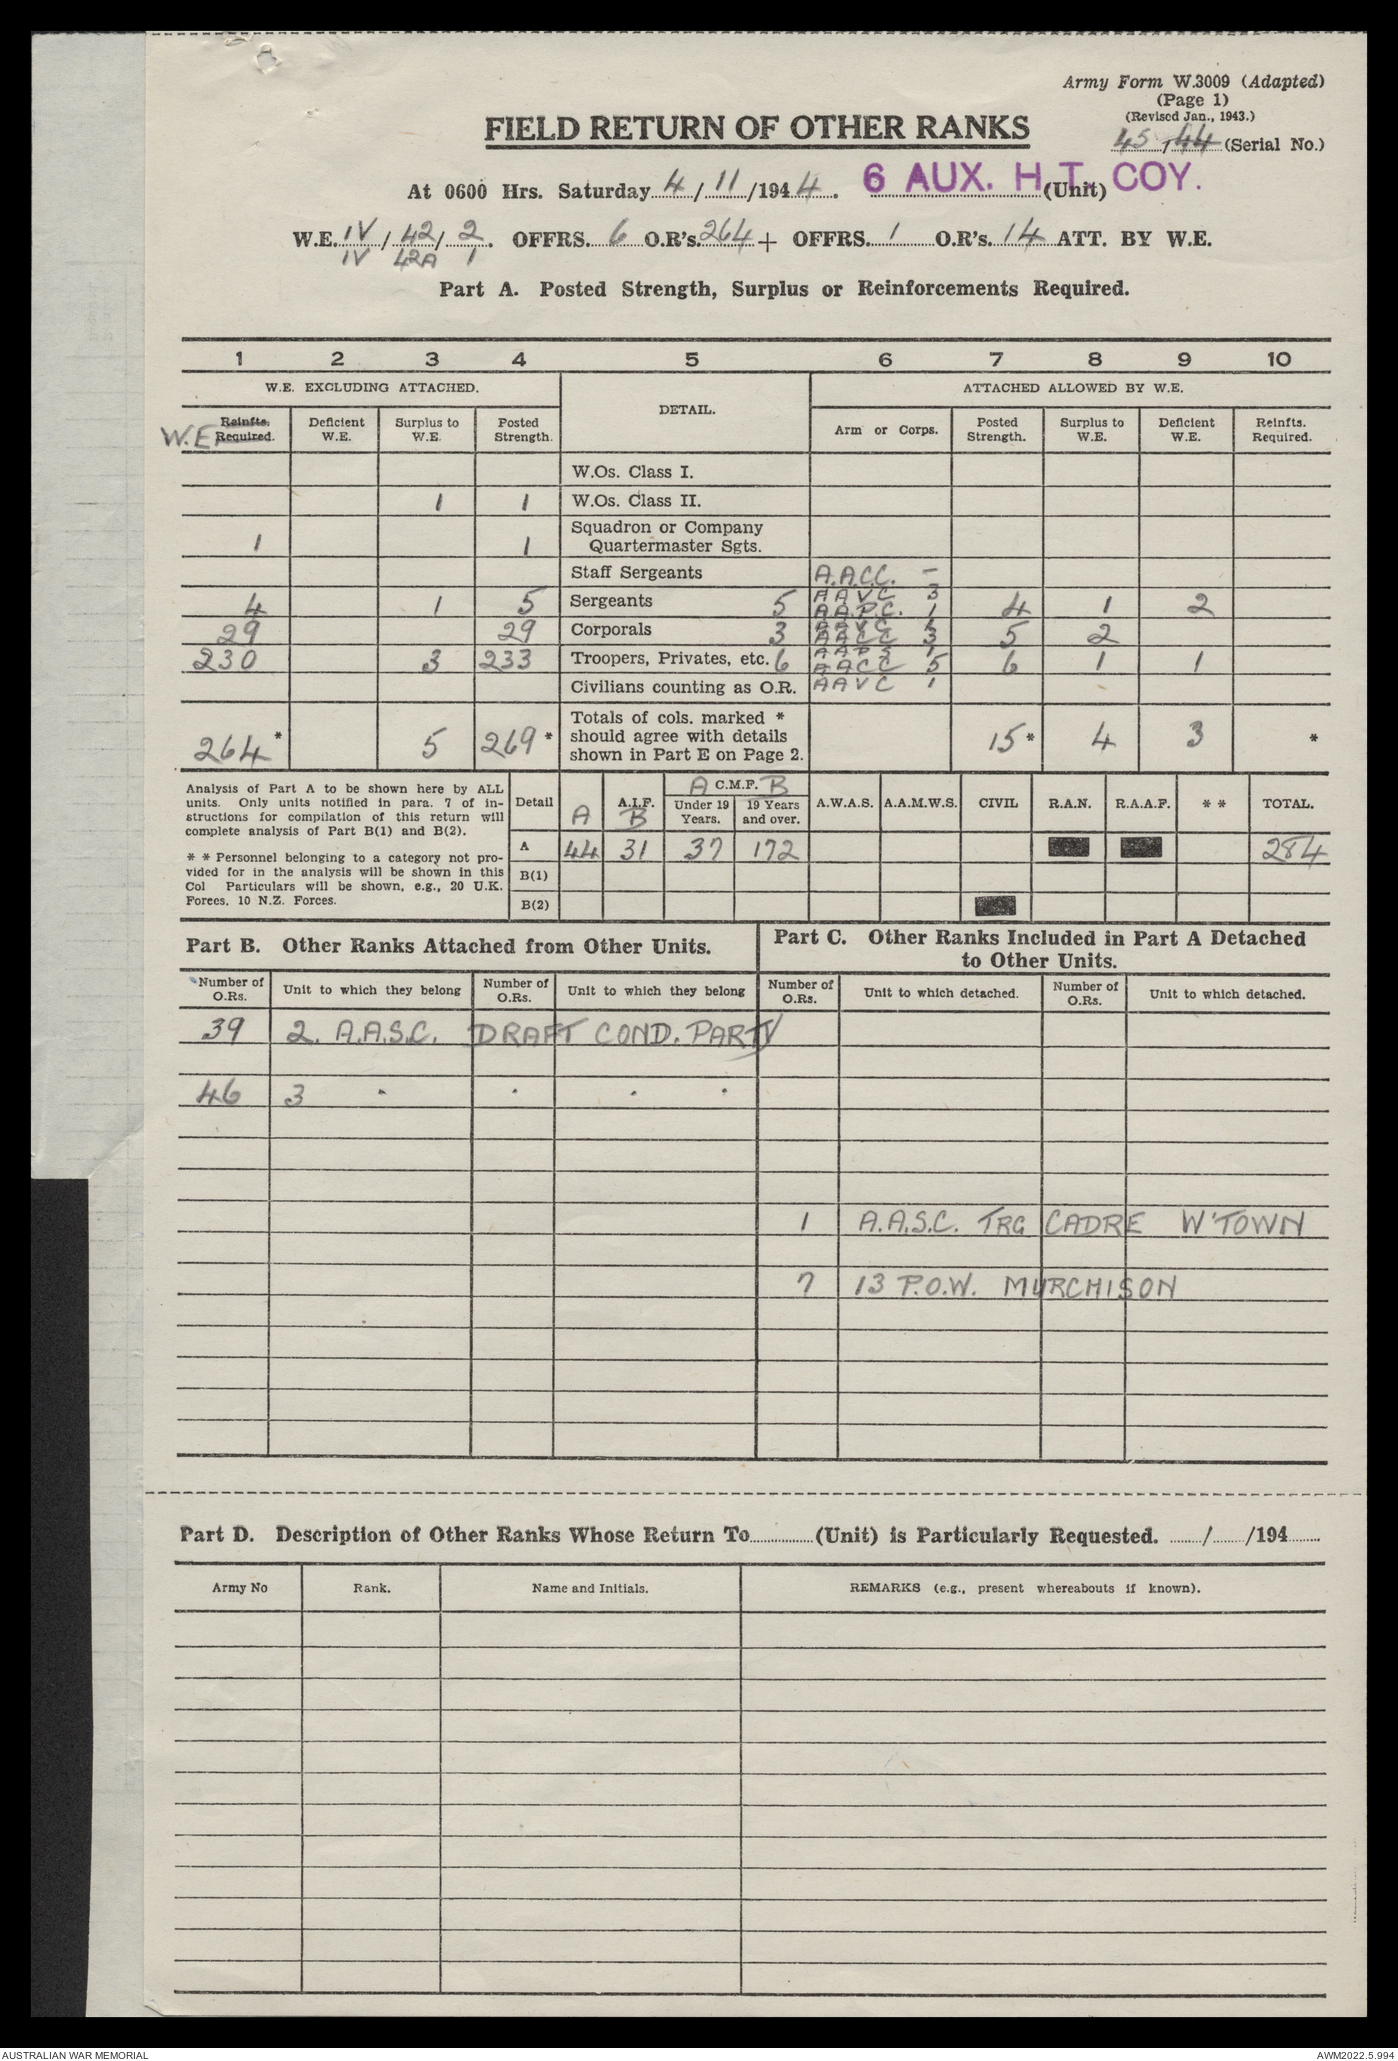 Army Form W.3009 (Adapted)
(Page 1)
(Revised Jan., 1943.)
45/44 (Serial No.)
FIELD RETURN OF OTHER RANKS
At 0600 Hrs. Saturday 4/11/1944. 6 AUX. H.T. COY. (Unit)
W.E. IV/42/2. OFFRS. 6 O.R's. 264 + OFFRS. 1 O.R's. 14 ATT. BY W.E.
IV 42A 1
Part A. Posted Strength, Surplus or Reinforcements Required.
1 2 3 4 5 6 7 8 9 10
W.E. EXCLUDING ATTACHED. DETAIL. ATTACHED ALLOWED BY W.E.
W.E. Reinfts. Required. Deficient W.E. Surplus to W.E. Posted Strength. Arm or Corps. Posted Strength. Surplus to W.E. Deficient W.E. Reinfts. Required.
W.Os. Class I.
1 1 W.Os. Class II.
1 1 Squadron or Company Quartermaster Sgts.
Staff Sergeants A.A.C.C. -
4 1 5 Sergeants 5 AAVC 3 A.A.P.C. 1 4 1 2
29 29 Corporals 3 AAVC AACC 3 5 2
230 3 233 Troopers, Privates, etc. 6 AAPS 1 AACC 5 6 1 1
Civilians counting as O.R. AAVC 1
264* 5 269* Totals of cols. marked * should agree with details shown in Part E on Page 2. 15* 4 3 *
Analysis of Part A to be shown here by ALL
units. Only units notified in para. 7 of in-
structions for compilation of this return will
complete analysis of Part B(1) and B(2).
* * Personnel belonging to a category not pro-
vided for in the analysis will be shown in this
Col Particulars will be shown, e.g., 20 U.K.
Forces, 10 N.Z. Forces.
Detail A A.I.F. B A C.M.F. B Under 19 Years. 19 Years and over. A.W.A.S. A.A.M.W.S. CIVIL R.A.N. R.A.A.F. * * TOTAL.
A 44 31 37 172 284
B(1)
B(2)
Part B. Other Ranks Attached from Other Units.
Number of O.Rs. Unit to which they belong Number of O.Rs. Unit to which they belong
39 2. A.A.S.C. DRAFT COND. PARTY
46 3 " " " "
Part C. Other Ranks Included in Part A Detached
to Other Units.
Number of O.Rs. Unit to which detached. Number of O.Rs. Unit to which detached.
1 A.A.S.C. TRG CADRE W'TOWN
7 13 P.O.W. MURCHISON
Part D. Description of Other Ranks Whose Return To (Unit) is Particularly Requested. / /194
Army No Rank. Name and Initials. REMARKS (e.g., present whereabouts if known).
AUSTRALIAN WAR MEMORIAL AWM2022.5.994